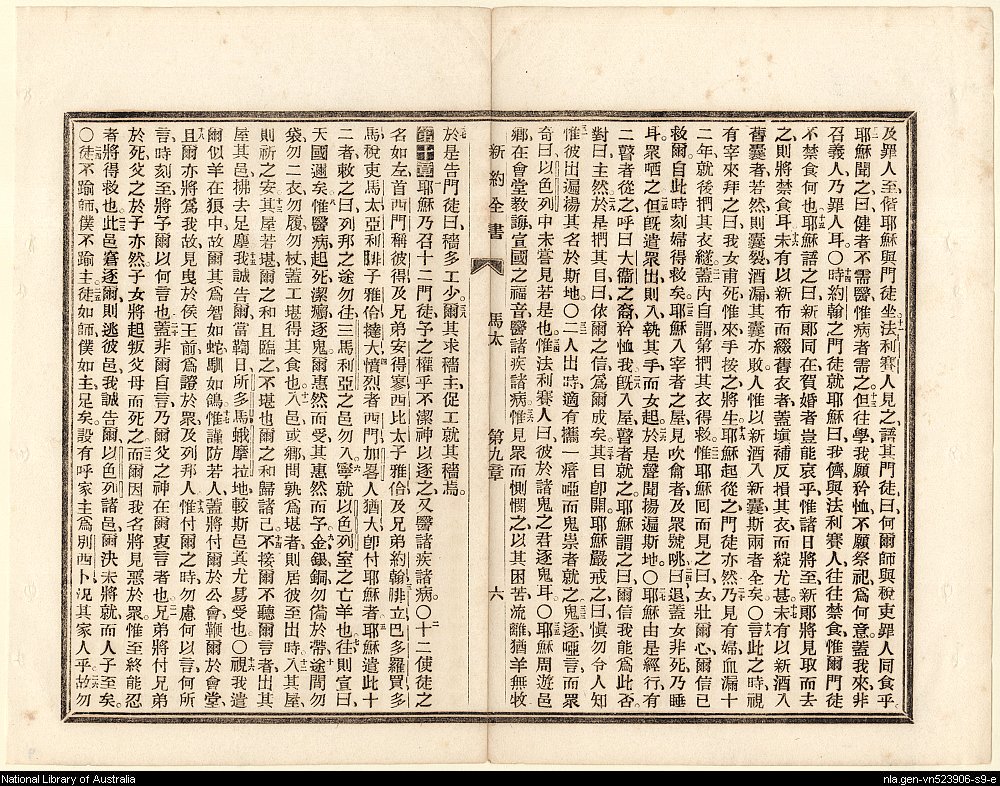 及罪人至偕耶穌與門徒坐法利賽人見之語其門徒曰何爾師與稅吏罪人同食乎
耶穌聞之曰健者不需醫惟病者需之但往學我願矜恤不願祭祀爲何意蓋我來非
召義人乃罪人耳○時約翰之門徒就耶穌曰我儕與法利賽人往往禁食惟爾門徒
不禁食何也耶穌語之曰新郎同在賀婚者豈能哀乎惟諸日將至新郎將見取而去
之則將禁食耳未有以新布而綴舊衣者蓋塡補反損其衣而綻尤甚未有以新酒入
舊囊者若然則囊裂酒漏其囊亦敗人惟以新酒入新囊斯兩者全矣○言此之時視
有宰來拜之曰我女甫死惟來手按之將生耶穌起從之門徒亦然乃見有婦血漏十
二年就後捫其衣蓋內自謂第捫其衣得救惟耶穌囘而見之曰女壯爾心爾信已
救爾自此時刻婦得救矣耶穌入宰者之屋見吹龠者及眾號咷曰退蓋女非死乃睡
耳眾哂之但旣遣眾出則入執其手而女起於是聲聞揚遍斯地○耶穌由是經行有
二瞽者從之呼曰大衞之裔矜恤我旣入屋瞽者就之耶穌謂之曰爾信我能爲此否
對曰主然於是捫其目曰依爾之信爲爾成矣其目卽開耶穌嚴戒之曰愼勿令人知
惟彼出遍揚其名於斯地○二人出時適有攜一瘖啞而鬼祟者就之鬼逐啞言而眾
奇曰以色列中未嘗見若是也惟法利賽人曰彼於諸鬼之君逐鬼耳○耶穌周遊邑
鄉在會堂敎誨宣國之福音醫諸疾諸病惟見眾而惻憫之以其困苦流離猶羊無牧
新約全書 馬太 第九章 六
於是告門徒曰穡多工少爾其求穡主促工就其穡焉
第十章耶穌乃召十二門徒予之權乎不潔神以逐之又醫諸疾諸病○十二使徒之
名如左首西門稱彼得及兄弟安得寥西比太子雅佮及兄弟約翰腓立巴多羅買多
馬稅吏馬太亞利腓子雅佮撻大憤烈者西門加畧人猶大卽付耶穌者耶穌遣此十
二者敕之曰列邦之途勿往三馬利亞之邑勿入寧就以色列室之亡羊也往則宣曰
天國邇矣惟醫病起死潔癩逐鬼爾惠然而受其惠然而予金銀銅勿備於帶途間勿
袋勿二衣勿履勿杖蓋工堪得其食也入邑或鄉問孰爲堪者則居彼至出時入其屋
則祈之安其屋若堪爾之和且臨之不堪也爾之和歸諸己不接爾不聽爾言者出其
屋其邑拂去足塵我誠告爾當鞫日所多馬蛾摩拉地較斯邑眞尤易受也○視我遣
爾似羊在狼中故爾其爲智如蛇馴如鴿惟謹防若人蓋將付爾於公會鞭爾於會堂
且爾亦將爲我故見曳於侯王前爲證於眾及列邦人惟付爾之時勿慮何以言何所
言時刻至將予爾以何言也蓋非爾自言乃爾父之神在爾衷言者也兄弟將付兄弟
於死父之於子亦然子女將起叛父母而死之而爾因我名將見惡於眾惟至終能忍
者將得救也此邑窘逐爾則逃彼邑我誠告爾以色列諸邑爾決未將就而人子至矣
○徒不踰師僕不踰主徒如師僕如主足矣設有呼家主爲別西卜況其家人乎故勿
National Library of Australia
nla.gen-vn523906-s9-e